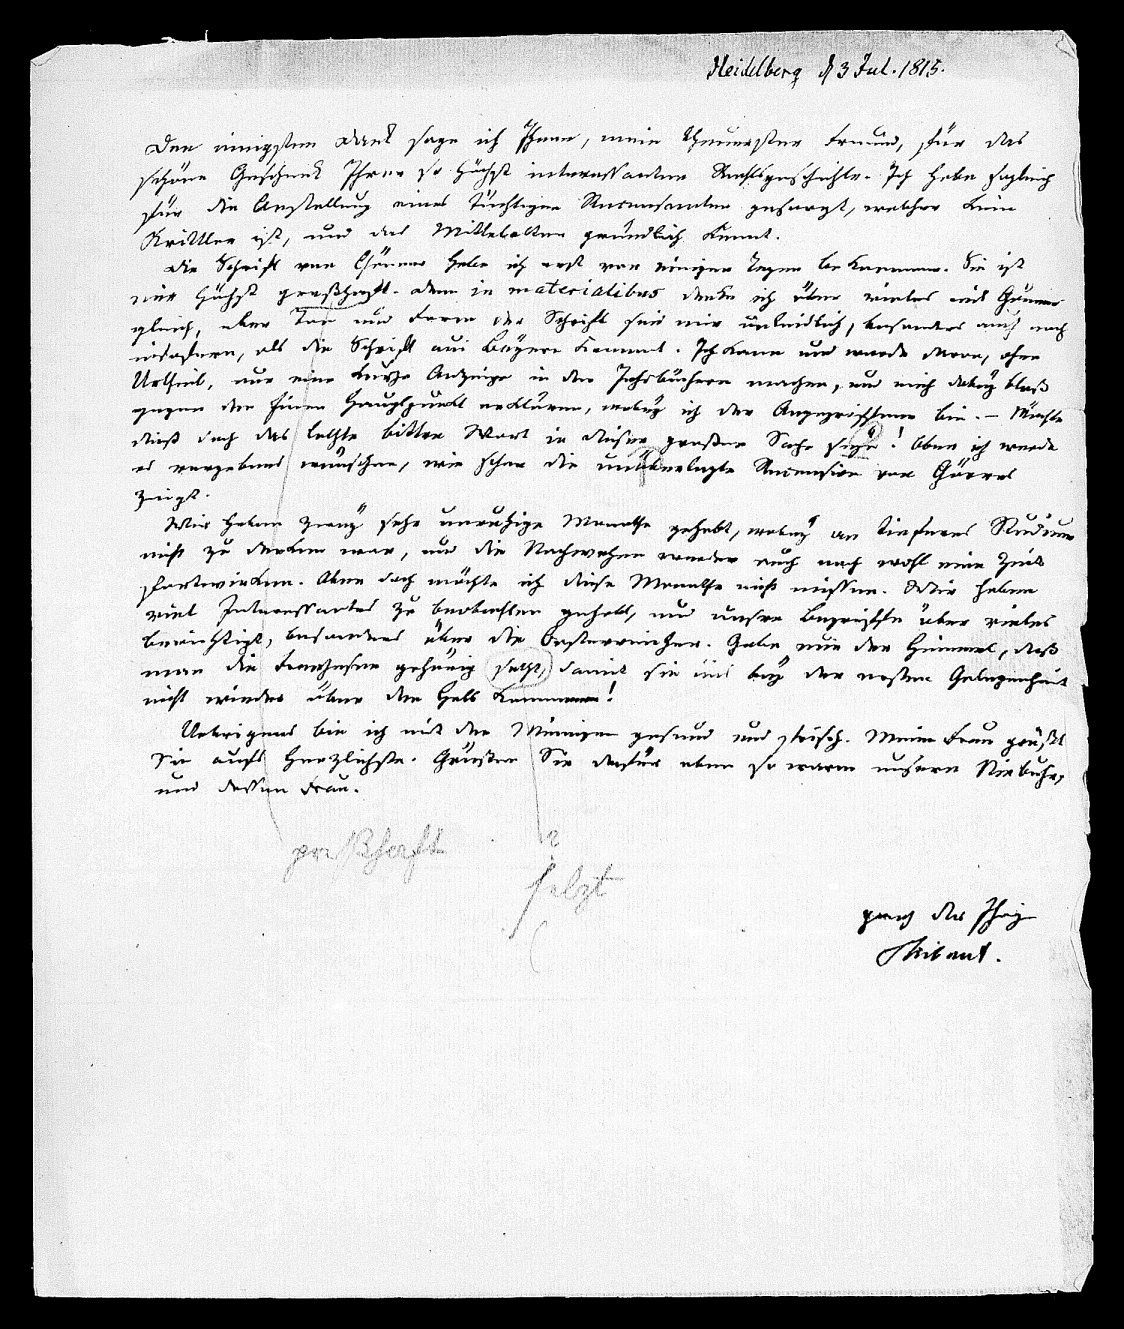 Heidelberg d 3 Jul. 1815.
Den innigsten Dank sage ich Ihnen, mein theuerster Freund, für das
schöne Geschenk Ihrer so höchst interessanten Rechtsgeschichte. Ich habe sogleich
für die Anstellung eines tüchtigen Recensenten gesorgt, welcher kein
Krittler ist, und das Mittelalter gründlich kennt.
Die Schrift von Gönner habe ich erst vor einigen Tagen bekommen. Sie ist
mir höchst Denn in materialibus denke ich über vieles mit Gönner
gleich, aber Ton und Form der Schrift sind mir unleidlich, besonders auch noch
insofern, als die Schrift aus Bayern kommt. Ich kann und werde davon, ohne
Urtheil, nur eine kurze Anzeige in den Jahrbüchern machen, und mich dabey bloß
gegen den einen Hauptpunkt erklären, wobey ich der Angegriffene bin. – Möchte
dieß doch das letzte bittre Wort in dieser großen Sache seyn! Aber ich werde
es vergebens wünschen, wie schon die unüberlegte Recension von Görres
zeigt.
Wir haben zwey sehr unruhige Monathe gehabt, wobey an tieferes Studium
nicht zu denken war, und die Nachwehen werden auch noch wohl eine Zeit
fortwirken. Aber doch möchte ich diese Monathe nicht missen. Wir haben
viel Interessantes zu beobachten gehabt, und unsre Begriffe über vieles
berichtigt, besonders über die Oesterreicher. Gebe nur der Himmel, daß
man die Franzosen gehörig damit sie uns bey der ersten Gelegenheit
nicht wieder über den Hals kommen!
Uebrigens bin ich mit den Meinigen gesund und frisch. Meine Frau grüßt
Sie aufs Herzlichste. Grüssen Sie dafür eben so warm unsern Niebuhr,
und dessen Frau.
?
ganz der Ihrige
Thibaut.